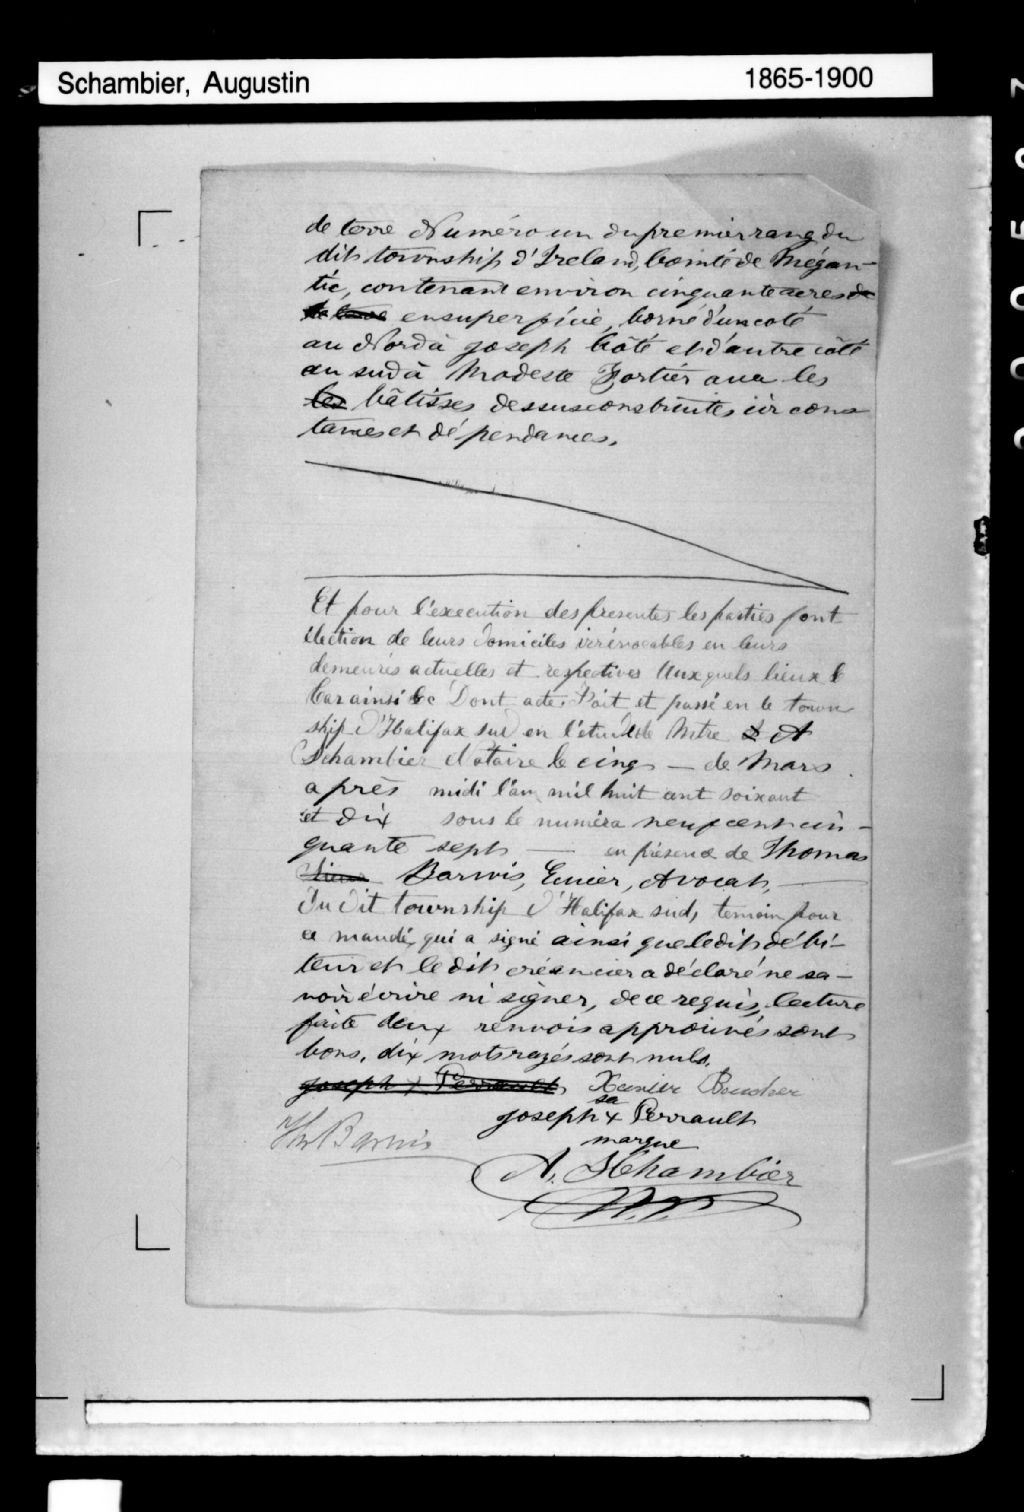 Schambier, Augustin 1865-1900
de terre Numéro un du premier rang du
dit township d'Ireland, Comté de Mégan-
tic, contenant environ cinquante acres de
en superficie, borné d'un coté
au Nord à Joseph Coté et d'autre côté
au sud à Modeste Fortier avec les
les bâtisses dessus construites circons
tances et dépendances.
Et pour l'execution des presentes les parties font
élection de leurs domiciles irrévocables en leurs
demeures actuelles et respectives Auxquels lieux &
Car ainsi &c Dont acte, Fait et passé en le town
ship d'Halifax sud en l'étude de Mtre A
Schambier Notaire le cinq — de Mars
après midi l'an mil huit cent soixant
et dix sous le numéro neuf cent cin-
quante sept — en présence de Thomas
Barwis, Ecuier, Avocat, —
Du dit township d'Halifax sud, temoin pour
ce mandé, qui a signé ainsi que le dit débi-
teur et le dit créancier a déclaré ne sa-
voir écrire ni signer, de ce requis, lecture
faite deux renvois approuvés sont
bons, dix mots rayés sont nuls.
Joseph x Perrault Xavier Boucher
sa
Joseph x Perrault
marque
Th Barwis
A. Schambier
N.P.